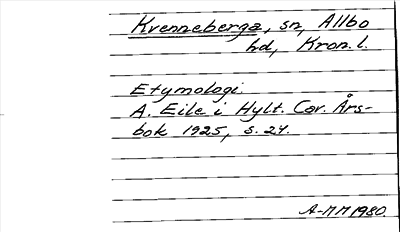 Kvenneberga, sn, Allbo
hd, Kron. l.
Etymologi.
A. Eile i Hylt. Cav. Års-
bok 1925, s. 24.
A-MM 1980